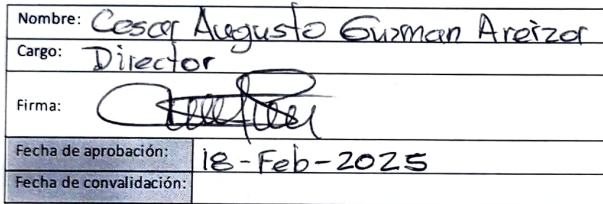 Nombre: Cesar Augusto Guzman Areiza
Cargo: Director
Firma:
Fecha de aprobación: 18-Feb-2025
Fecha de convalidación: